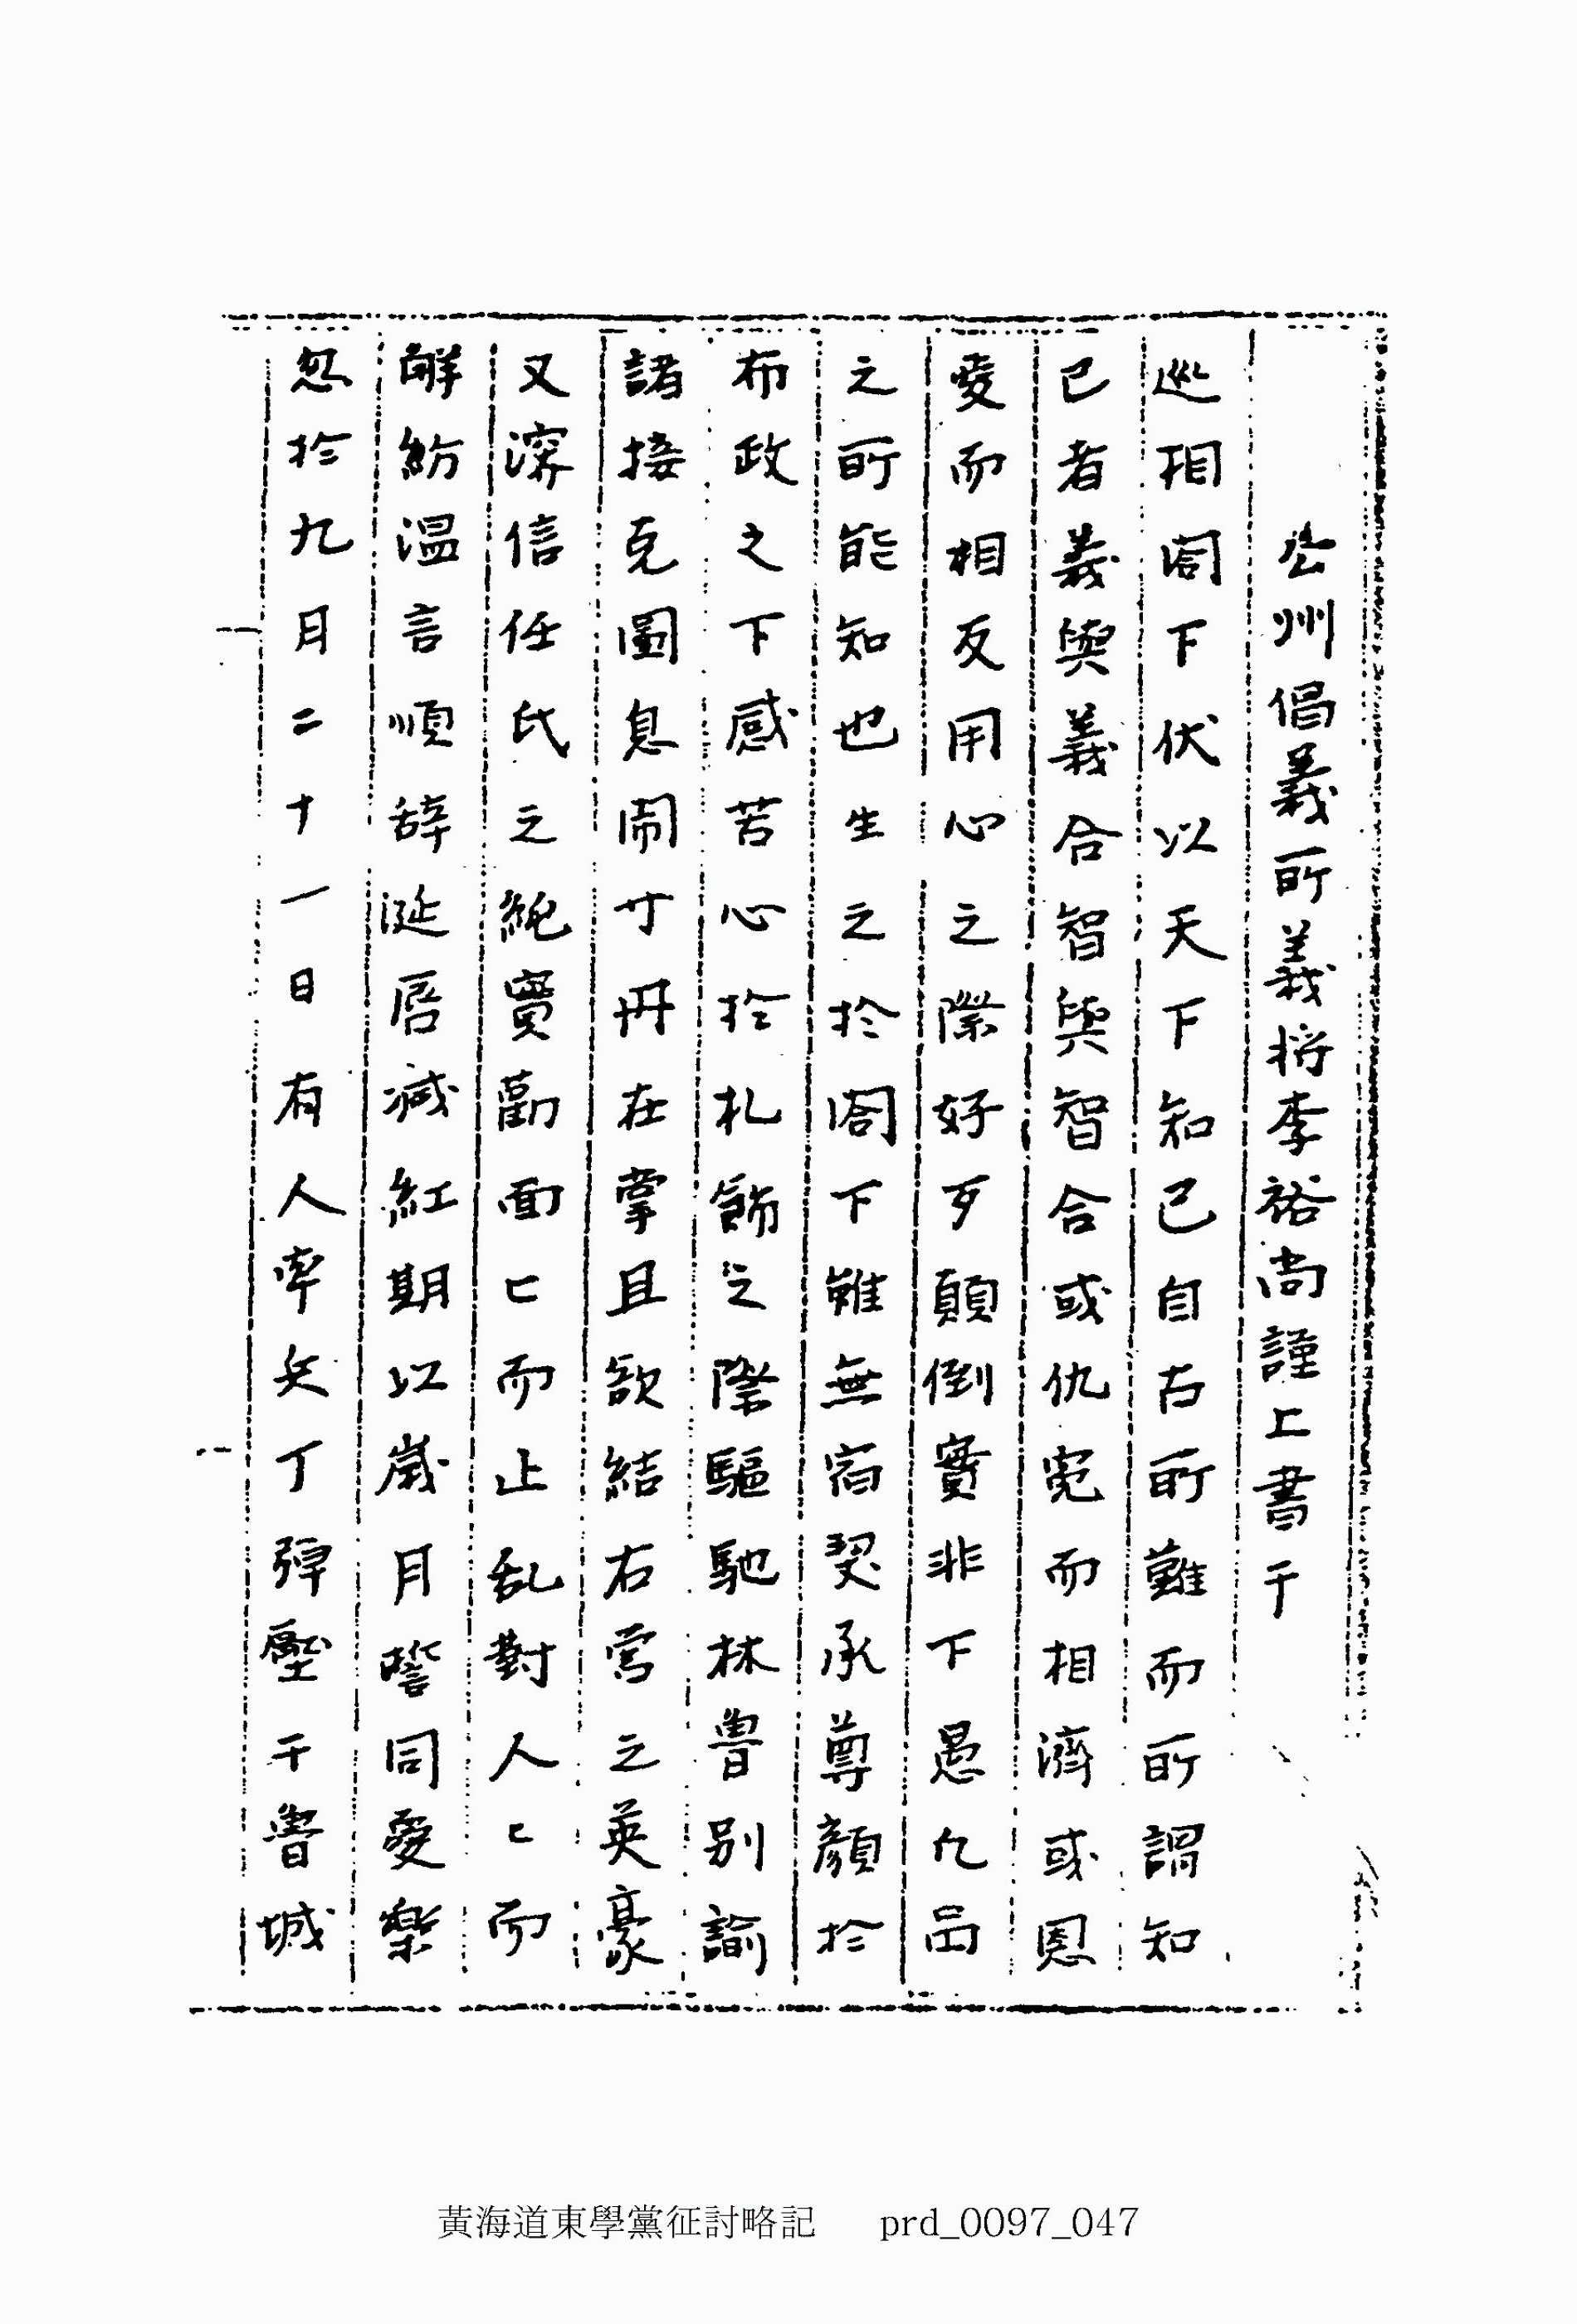 公州倡義所義將李裕尚謹上書于
巡相閤下伏以天下知己自古所難而所謂知
己者義與義合智與智合或仇寃而相濟或恩
愛而相反用心之際好歹顛倒實非下愚凡品
之所能知也生之於閤下雖無宿契承尊顔於
布政之下感苦心於札飭之際驅馳林魯別諭
諸接克圖息鬧寸丹在掌且欲結右営之英豪
又深信任氏之統賣勸面匕而止乱對人匕而
觧紛温言順辞涎唇减紅期以歲月誓同愛樂
忽於九月二十一日有人率兵丁弹壓于魯城
黃海道東學黨征討略記 prd_0097_047